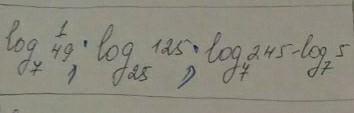 log₇ 1/49; log₂₅ 125; log₇ 245 - log₇ 5